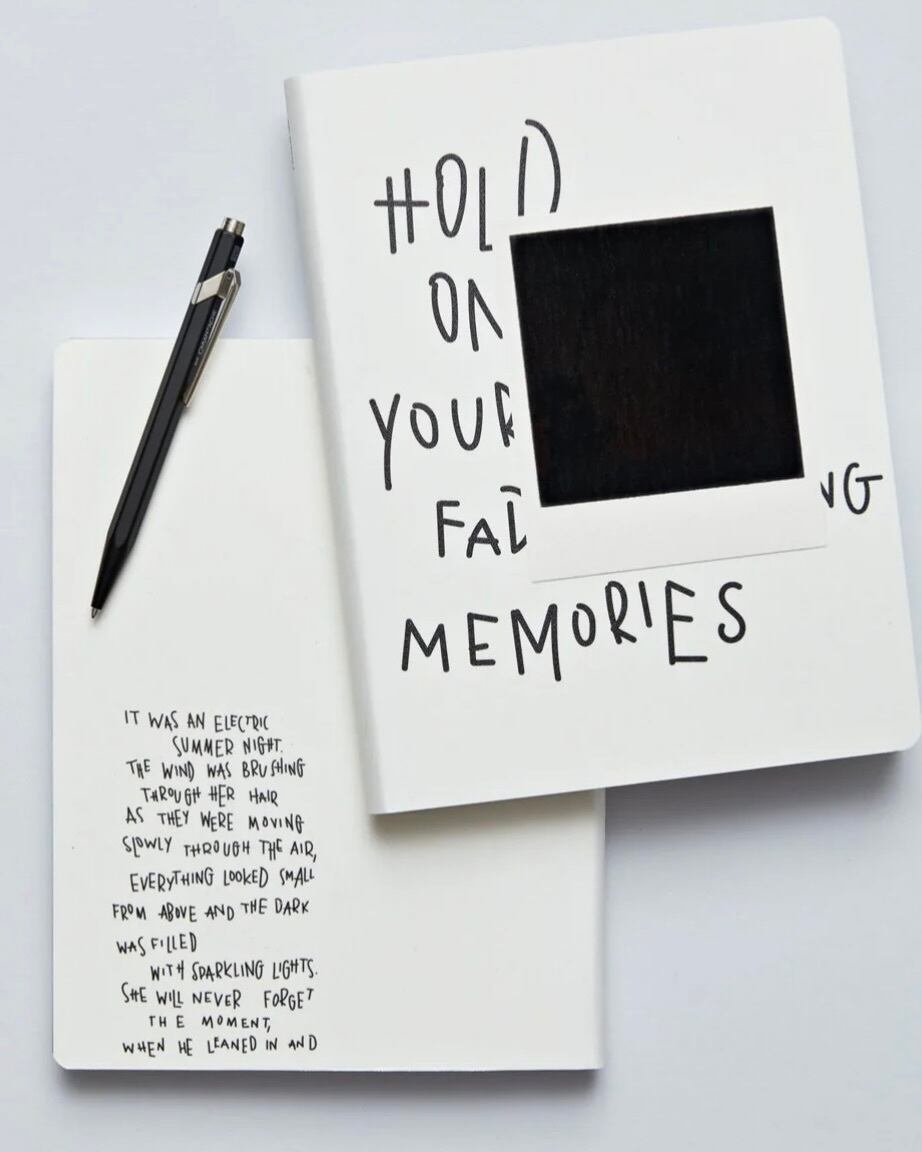 HOLD
ON
YOUR
MEMORIES
IT WAS AN ELECTRIC
SUMMER NIGHT.
THE WIND WAS BRUSHING
THROUGH HER HAIR
AS THEY WERE MOVING
SLOWLY THROUGH THE AIR,
EVERYTHING LOOKED SMALL
FROM ABOVE AND THE DARK
WAS FILLED
WITH SPARKLING LIGHTS.
SHE WILL NEVER FORGET
THE MOMENT,
WHEN HE LEANED IN AND